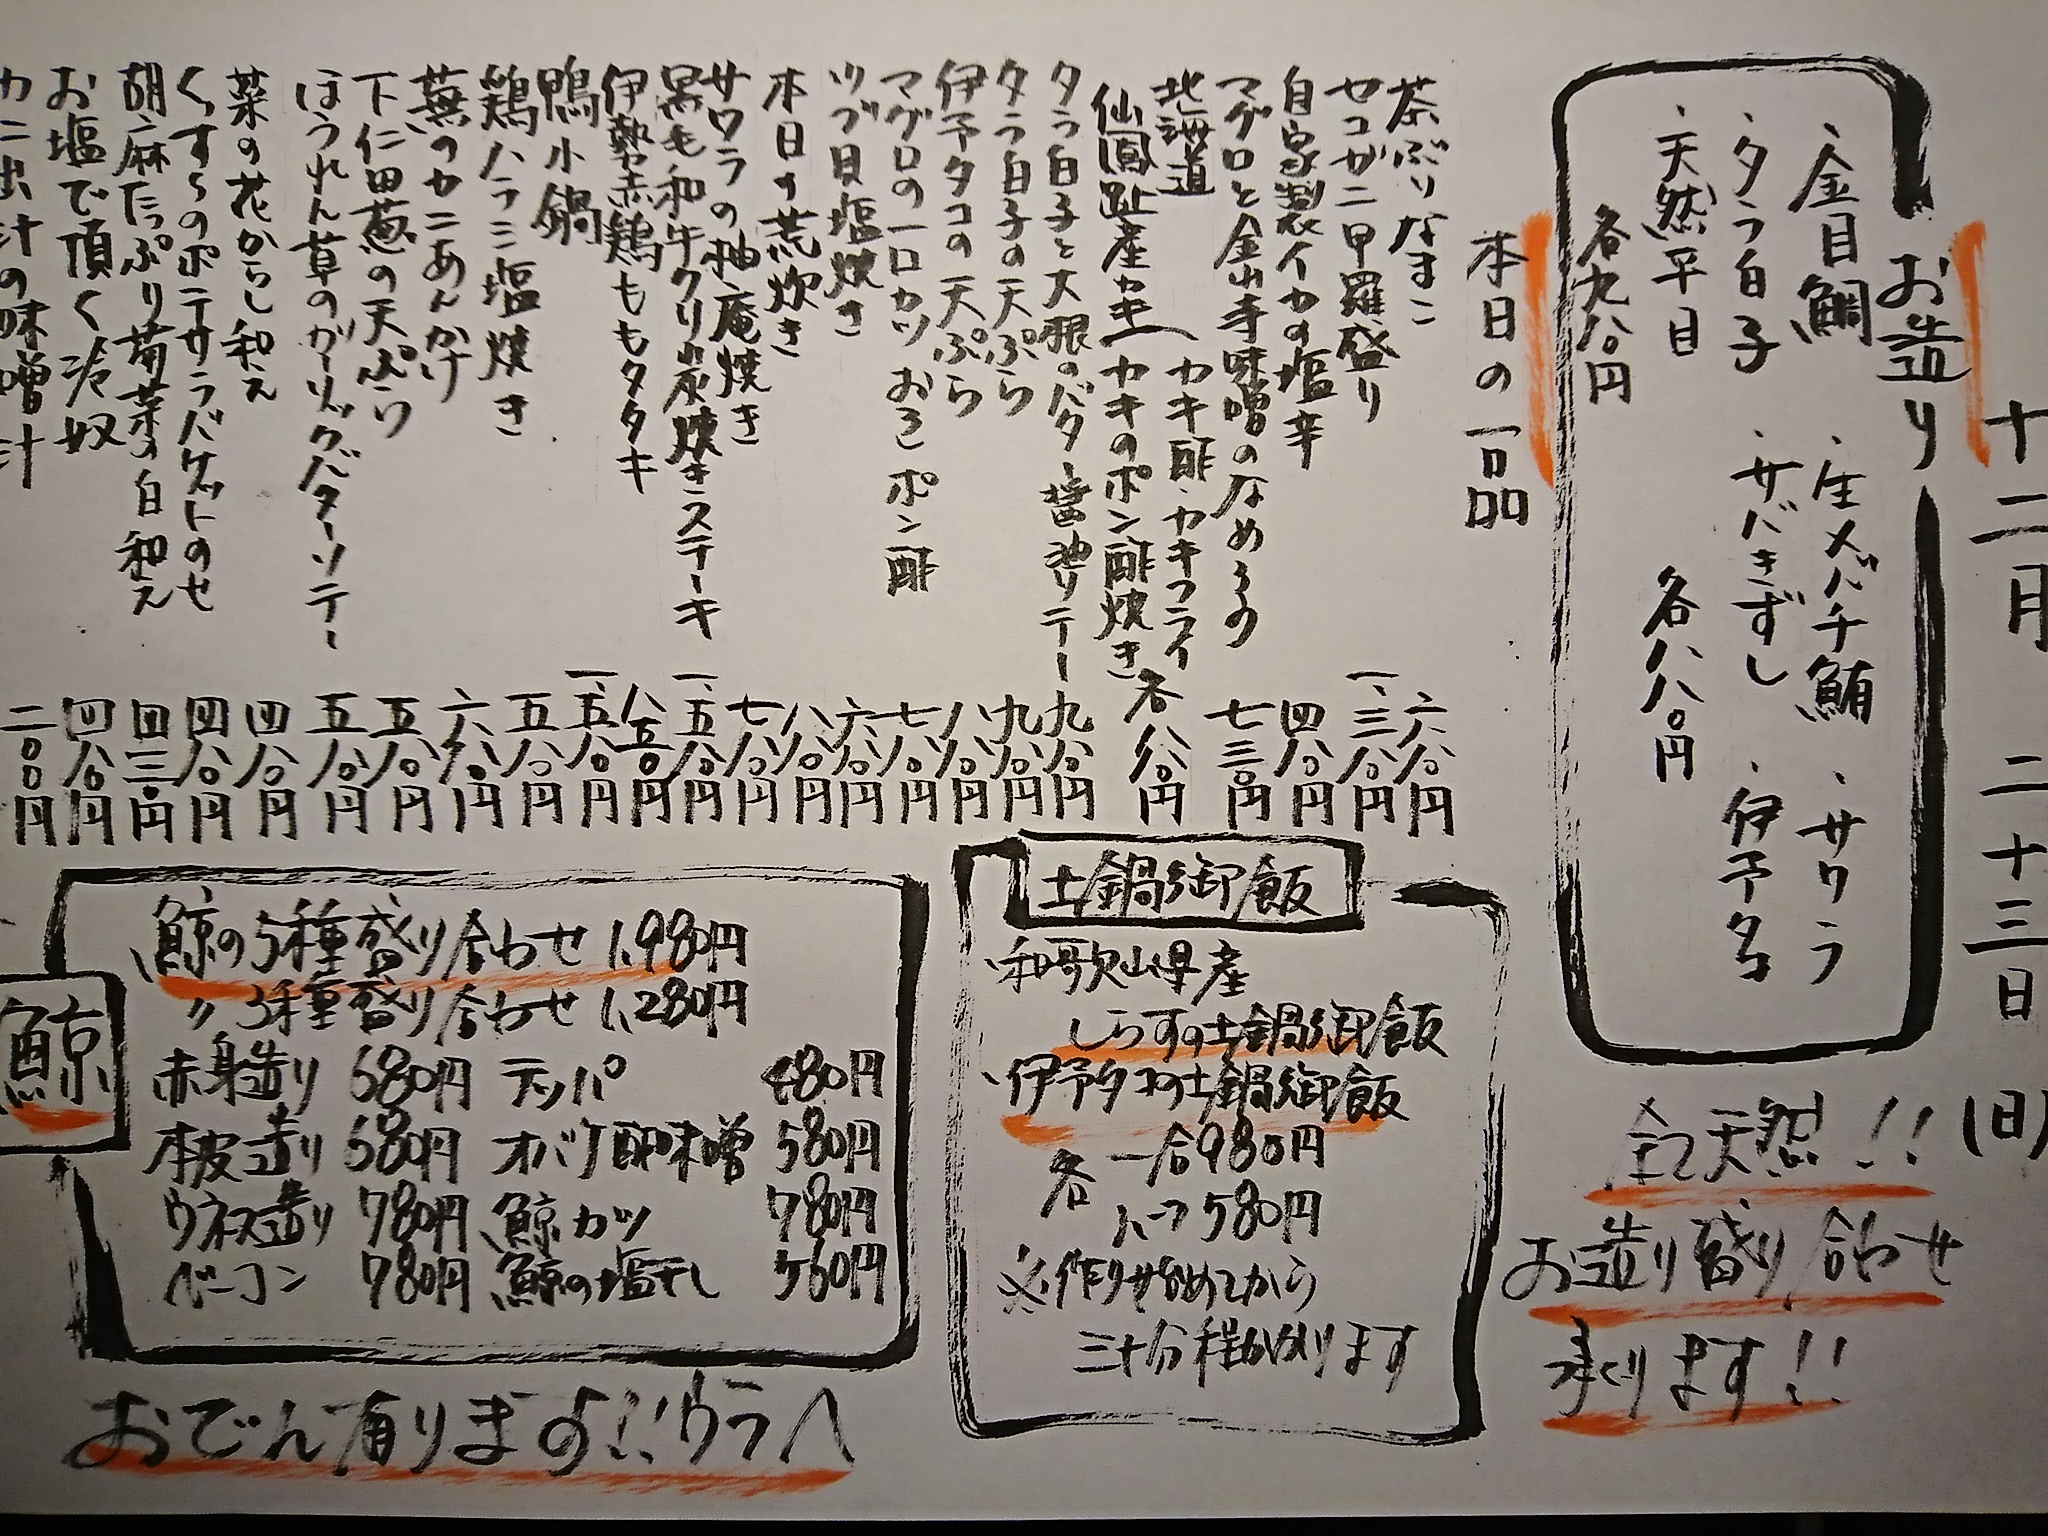 十二月 二十三日 (日)
お造り
・金目鯛 ・生メバチ鮪 ・サワラ
・タラ白子 ・サバきずし ・伊予タコ
・天然平目 各八八〇円
各九八〇円
全て天然!!
お造り盛り合わせ
承ります!!
本日の一品
茶ぶりなまこ 六八〇円
セコガニ甲羅盛り 一、三八〇円
自家製イカの塩辛 四八〇円
マグロと金山寺味噌のなめろう 七三〇円
北海道
仙鳳趾産カキ
カキ酢・カキフライ
カキのポン酢焼き 各八八〇円
タラ白子と大根のバター醤油ソテー 九八〇円
タラ白子の天ぷら 九八〇円
伊予タコの天ぷら 八八〇円
マグロの一口カツ おろしポン酢 七八〇円
ツブ貝塩焼き 六八〇円
本日の荒炊き 八八〇円
サワラの柚庵焼き 七八〇円
黒毛和牛クリ炭焼きステーキ 一、五八〇円
伊勢赤鶏ももタタキ 八五〇円
鴨小鍋 一、五八〇円
鶏ハラミ塩焼き 五八〇円
蕪のカニあんかけ 六八〇円
下仁田葱の天ぷら 五八〇円
ほうれん草のガーリックバターソテー 五八〇円
菜の花からし和え 四八〇円
くずらのポテサラバケットのせ 四八〇円
胡麻たっぷり菊菜の白和え 四三〇円
お塩で頂く冷奴 四八〇円
カニ出汁の味噌汁 二〇〇円
土鍋御飯
・和歌山県産
しらすの土鍋御飯
・伊予タコの土鍋御飯
各 一合980円
ハーフ580円
※作り始めてから
三十分程かかります
鯨
・鯨の5種盛り合わせ 1,980円
〃 3種盛り合わせ 1,280円
赤身造り 580円 テッパ 480円
本皮造り 580円 オバケ酢味噌 580円
ウネス造り 780円 鯨カツ 780円
ベーコン 780円 鯨の塩干し 560円
おでん有ります!!ウラへ